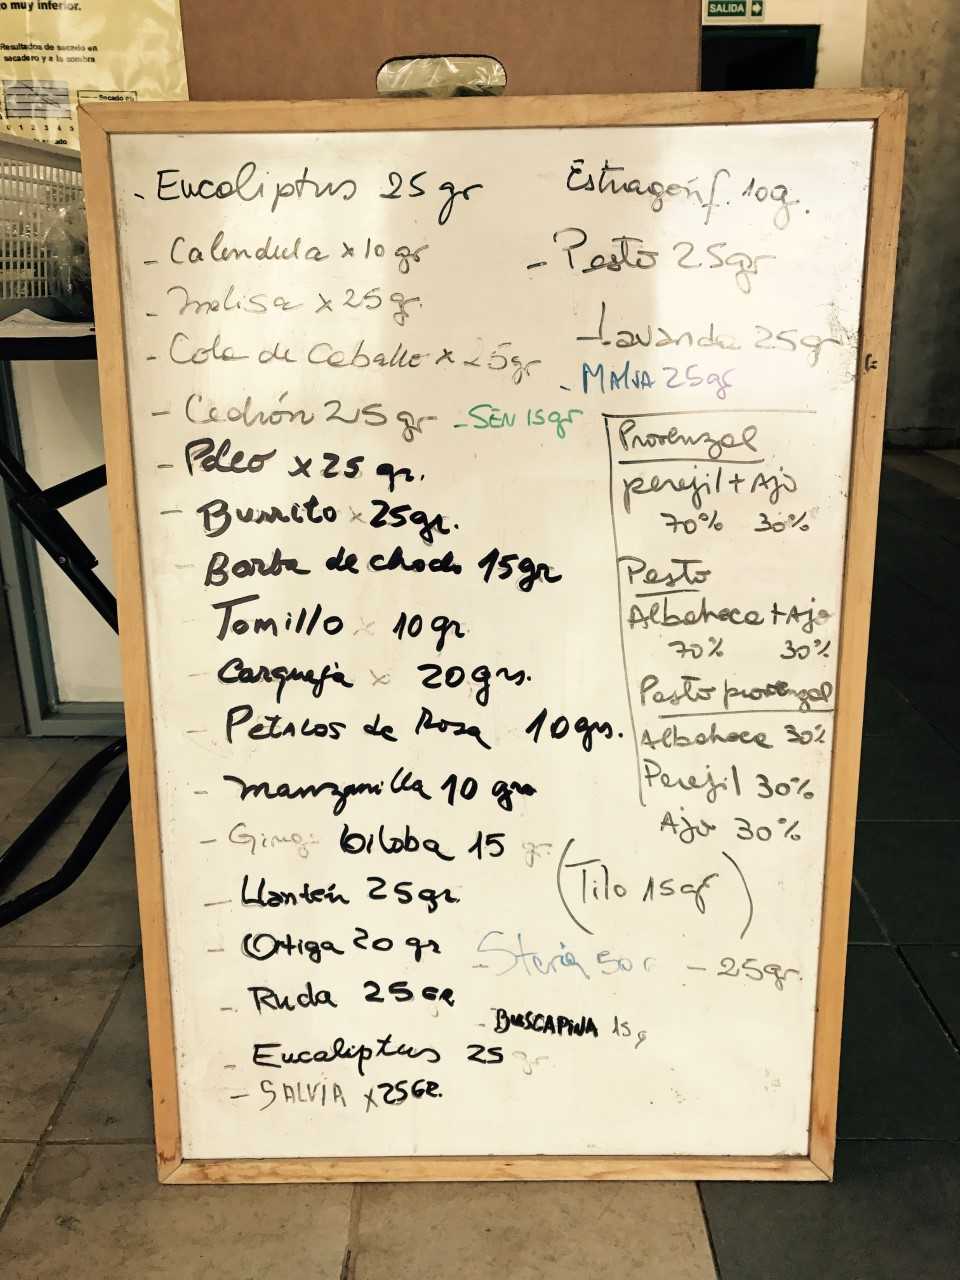 o muy inferior.
Resultados de secado en
secadero y a la sombra
Secado
0 1 2 3 4 5
SALIDA
- Eucoliptus 25 gr
- Calendula x 10 gr
- melisa x 25 gr.
- Cola de Caballo x 25gr
- Cedrón 25 gr
- SEN 15gr
- Poleo x 25 gr.
- Burrito x 25gr.
- Barba de choclo 15gr
- Tomillo x 10 gr
- Carqueja x 20grs.
- Petalos de Rosa 10grs.
- manzanilla 10 grs
- Ging biloba 15 gr.
- Llantén 25gr.
- Ortiga 20 gr
- Ruda 25 GR
- Eucaliptus 25 gr.
- SALVIA x 25GR.
Estragón f. 10g.
- Pesto 25gr
- Lavanda 25gr
- MALVA 25gr
Provenzal
perejil + Ajo
70% 30%
Pesto
Albahaca + Ajo
70% 30%
Pesto provenzal
Albahaca 30%
Perejil 30%
Ajo 30%
(Tilo 15gr)
- Stevia 50 - 25gr.
- BUSCAPINA 15g